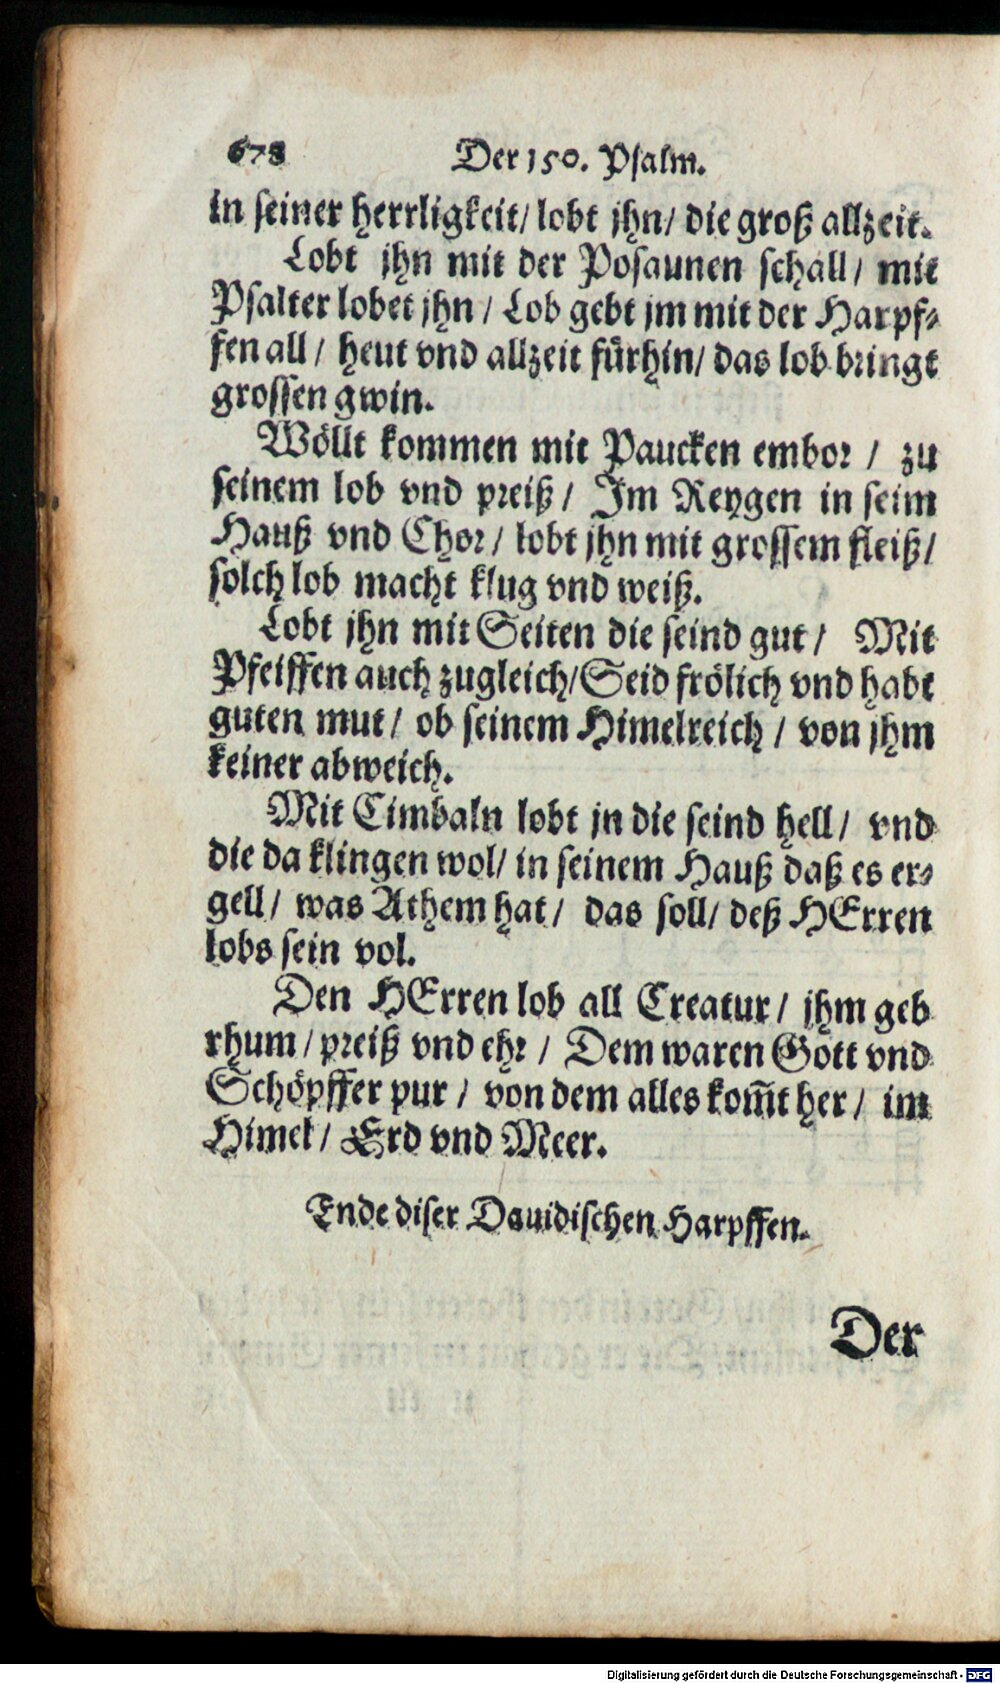 678 Der 150. Psalm.
in seiner herrligkeit/ lobt jhn/ die groß allzeit.
Lobt jhn mit der Posaunen schall/ mit
Psalter lobet jhn/ Lob gebt jm mit der Harpf⸗
fen all/ heut vnd allzeit fürhin/ das lob bringt
grossen gwin.
Wöllt kommen mit Paucken embor/ zu
seinem lob vnd preiß/ Jm Reygen in seim
Hauß vnd Chor/ lobt jhn mit grossem fleiß/
solch lob macht klug vnd weiß.
Lobt jhn mit Seiten die seind gut/ Mit
Pfeiffen auch zugleich/ Seid frölich vnd habt
guten mut/ ob seinem Himelreich/ von jhm
keiner abweich.
Mit Cimbaln lobt jn die seind hell/ vnd
die da klingen wol/ in seinem Hauß daß es er⸗
gell/ was Athem hat/ das soll/ deß HErren
lobs sein vol.
Den HErren lob all Creatur/ jhm geb
rhum/ preiß vnd ehr/ Dem waren Gott vnd
Schöpffer pur/ von dem alles kom̃t her/ im
Himel/ Erd vnd Meer.
Ende diser Dauidischen Harpffen.
Der
Digitalisierung gefördert durch die Deutsche Forschungsgemeinschaft - DFG